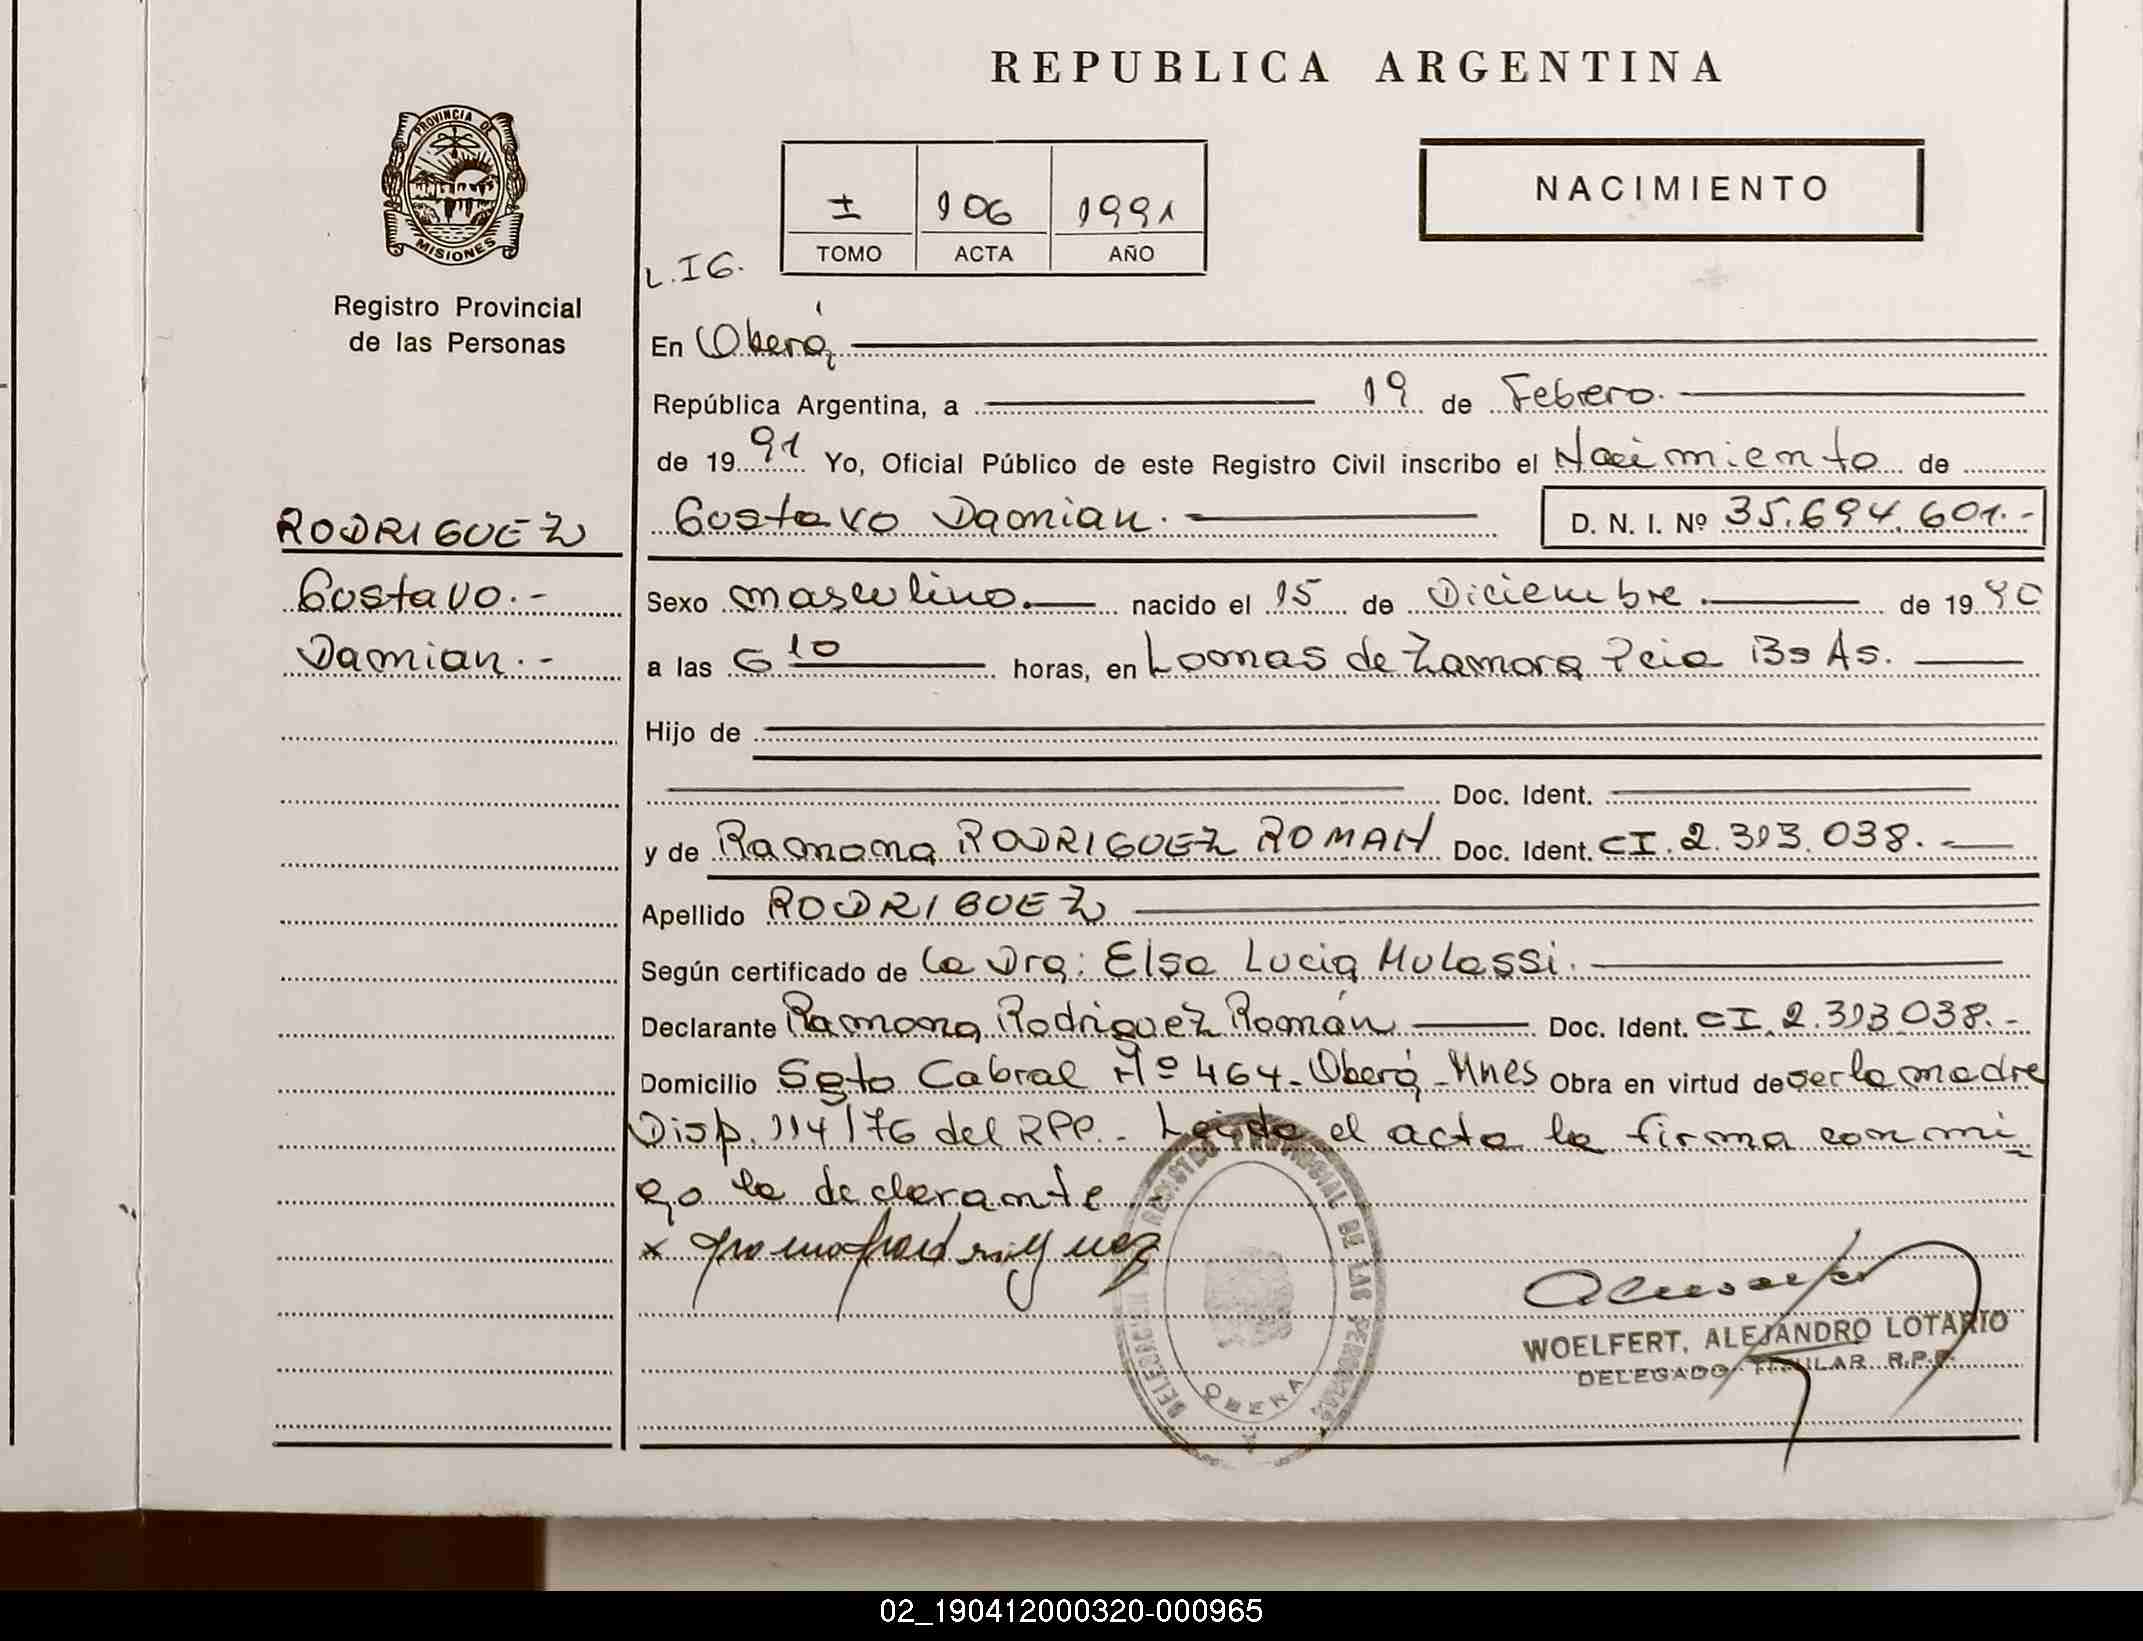 REPUBLICA ARGENTINA
PROVINCIA DE
MISIONES
Registro Provincial
de las Personas
I 106 1991
TOMO ACTA AÑO
NACIMIENTO
L.IG.
En Oberá,
República Argentina, a 19 de Febrero.
de 1991 Yo, Oficial Público de este Registro Civil inscribo el Nacimiento de
Gustavo Damian. D. N. I. Nº 35.694.601.-
RODRIGUEZ
Gustavo.-
Damian.-
Sexo masculino. nacido el 15 de Diciembre. de 1990
a las 6 10 horas, en Lomas de Zamora Pcia Bs As.
Hijo de
Doc. Ident.
y de Ramona RODRIGUEZ ROMAN Doc. Ident. CI.2.313.038.-
Apellido RODRIGUEZ
Según certificado de la Dra: Elsa Lucia Mulassi.
Declarante Ramona Rodriguez Román Doc. Ident. CI.2.313.038.-
Domicilio Sgto Cabral Nº 464-Oberá-Mnes Obra en virtud de ser la madre
Disp. 114/76 del RPP.- Leida el acta la firma conmi
go la declarante
x
DELEGACION REGISTRO PROVINCIAL DE LAS PERSONAS
OBERA
WOELFERT, ALEJANDRO LOTARIO
DELEGADO TITULAR R.P.P.
02_190412000320-000965